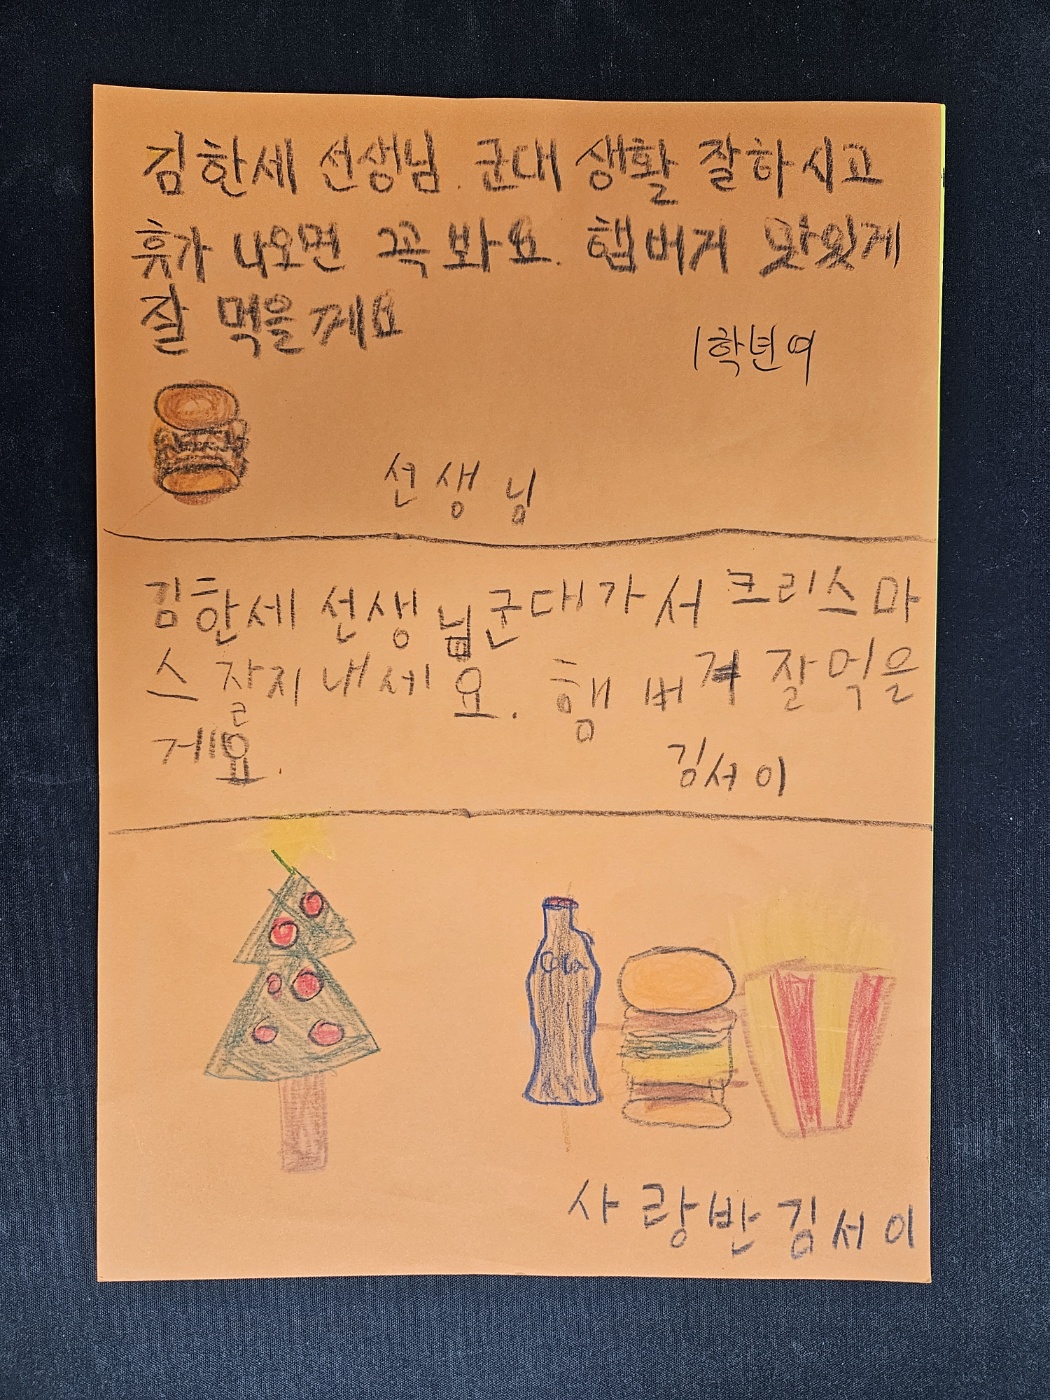 김한세 선생님. 군대 생활 잘하시고
휴가 나오면 꼭 봐요. 햄버거 맛있게
잘 먹을께요
1학년여
선생님
김한세 선생님 군대가서 크리스마
스 잘지내세요. 햄버거 잘먹을
게요.
김서이
Cola
사랑반 김서이